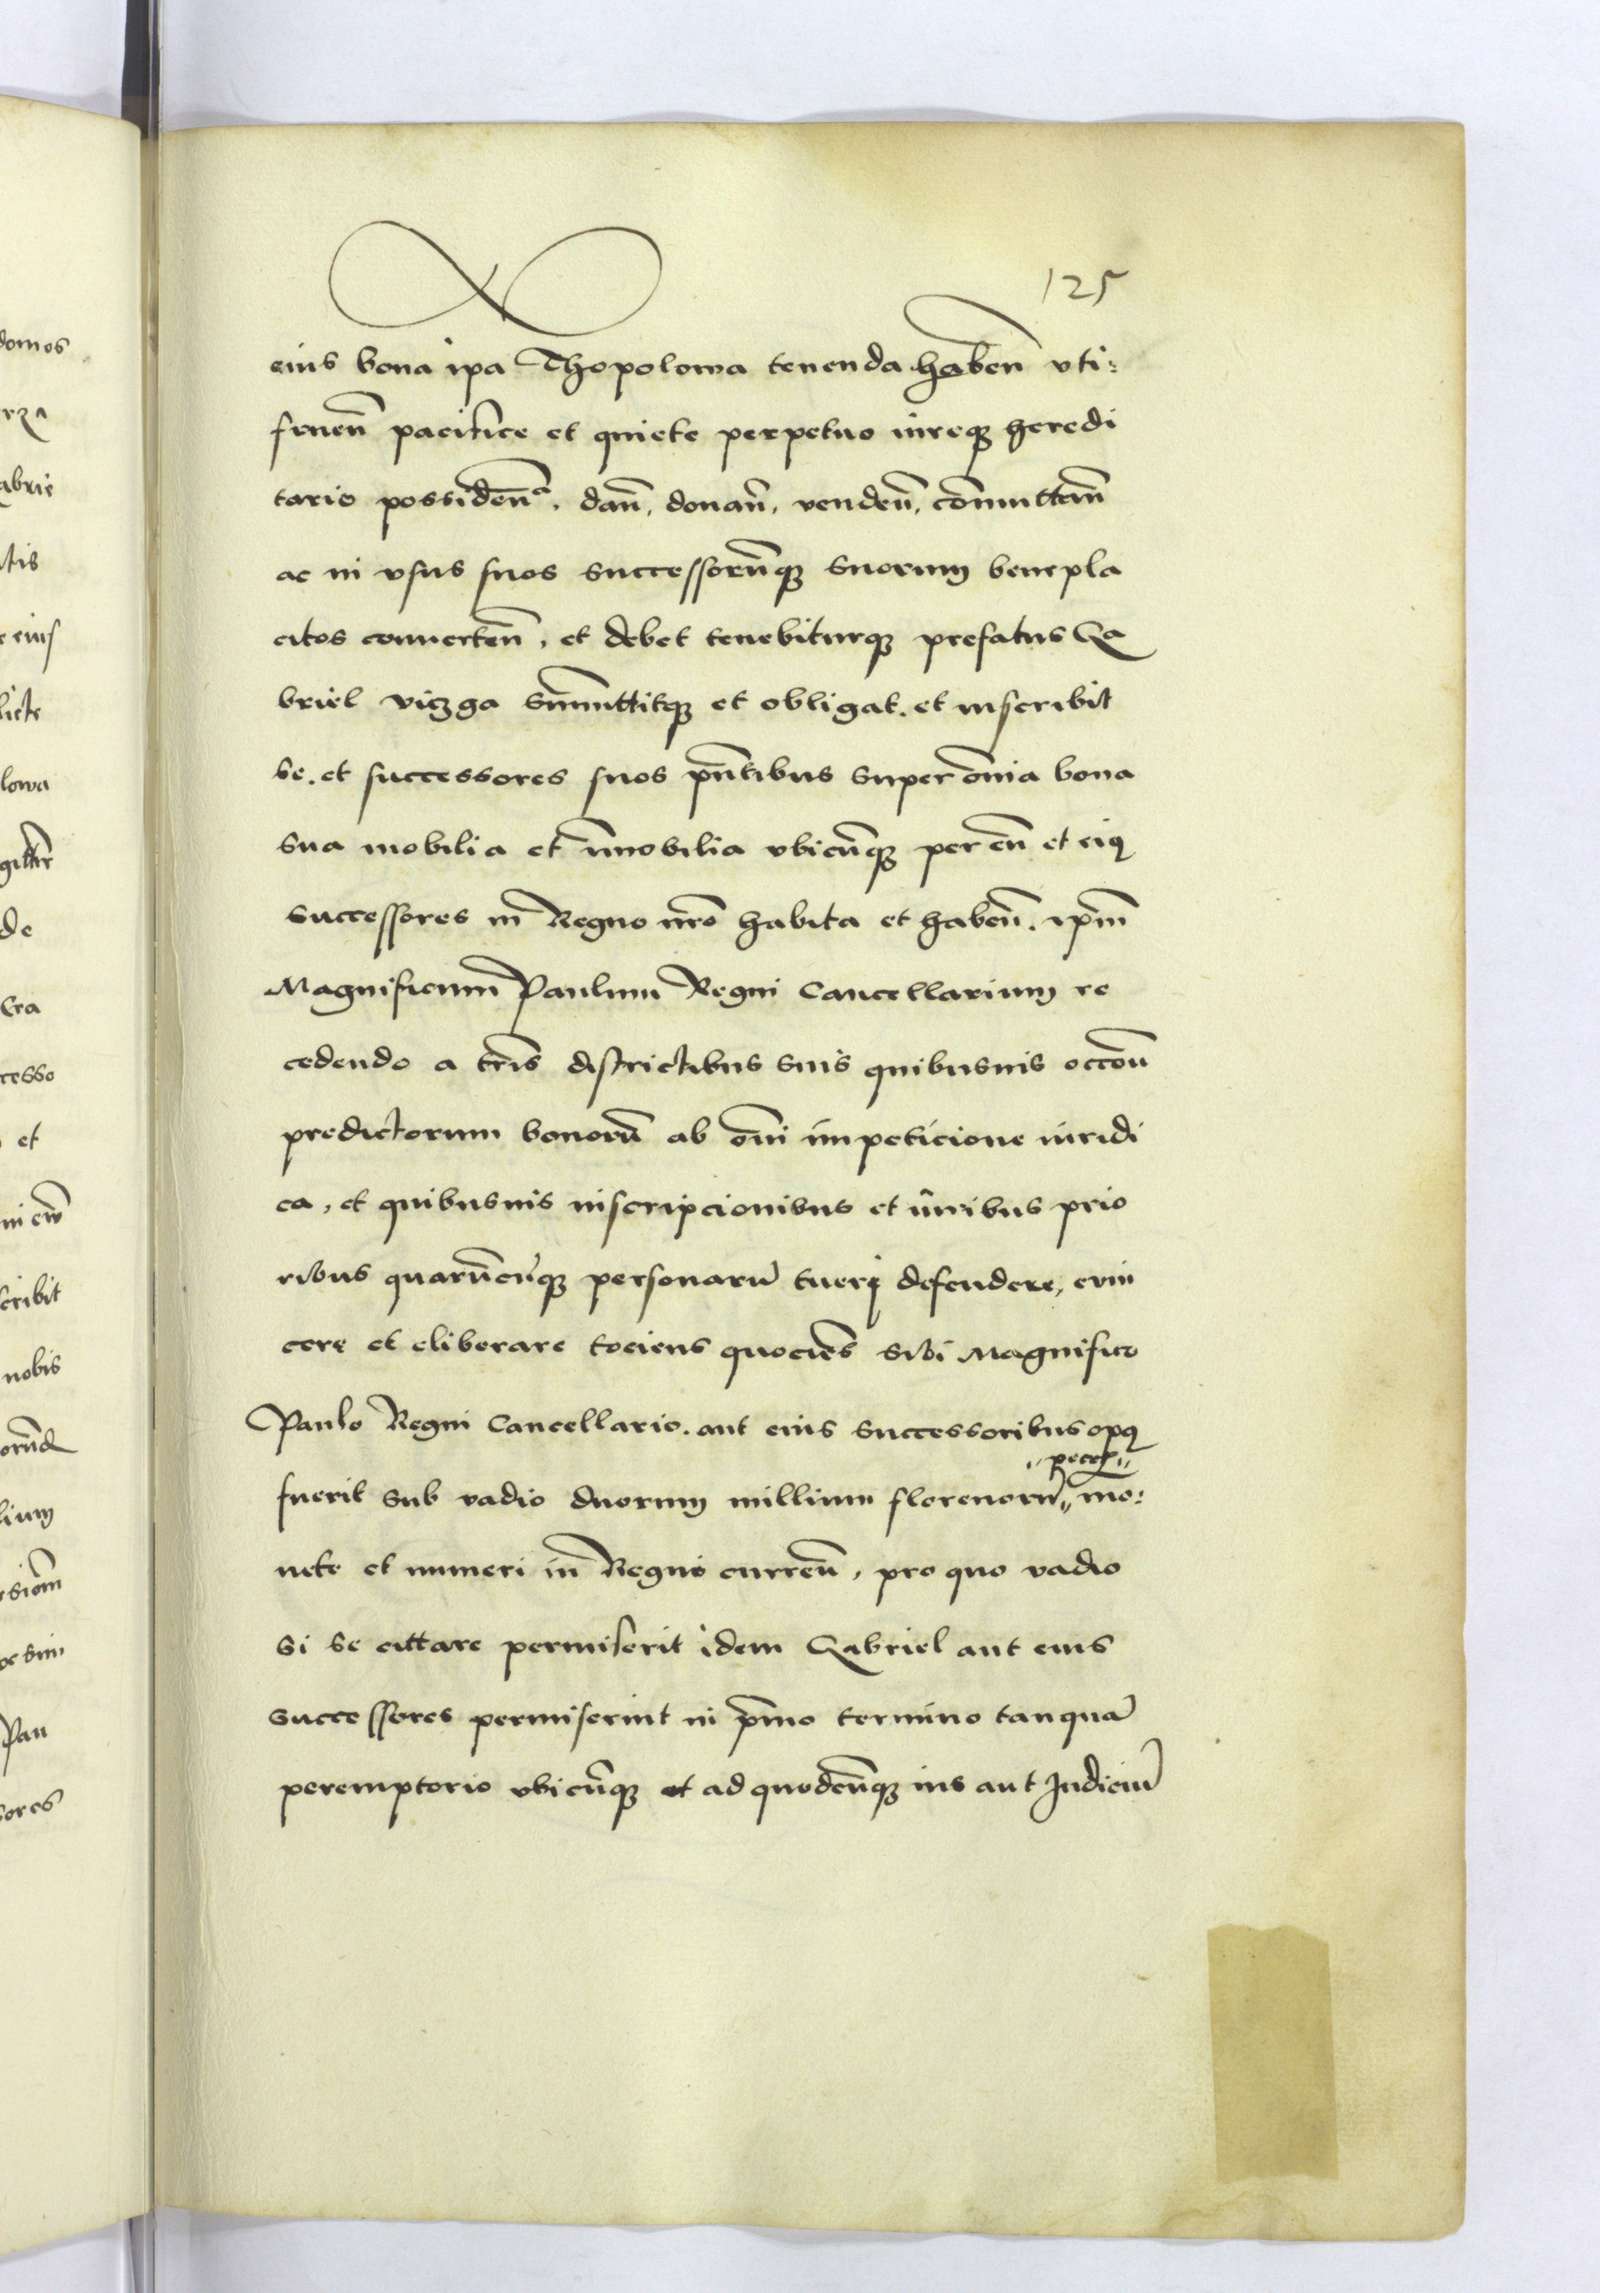 125
eius bona ipa Thopolowa tenenda haben̄ vti:
fruen̄ pacifice et quiete perpetuo iureqꝫ heredi
tario possiden̄ᵃ, dan̄, donan̄, venden̄, com̄uttan̄
ac in vsus suos successorūqꝫ suorum benepla
citos conuerten̄, et debet tenebiturqꝫ prefatus Ga
briel viczga sum̄ittitqꝫ et obligat. et inscribit
se. et successores suos pn̄tibus super om̄ia bona
sua mobilia et im̄obilia vbicūqꝫ per eū et eiꝰ
successores in Regno nr̄o habita et haben̄. ipm̄
Magnificum Paulum Regni Cancellarium re
cedendo a tr̄is districtibus suis quibusuis occōn
predictorum bonorū ab om̄i impeticione iuridi
ca, et quibusuis inscripcionibus et iuribus prio
ribus quarūcūqꝫ personarū tueri defendere, euin
cere et eliberare tociens quociēs sibi Magnifico
Paulo Regni Cancellario. aut eius successoribus opꝰ
fuerit sub vadio duorum millium florenorū mo:
nete et numeri in Regno curren̄, pro quo vadio
si se cittare permiserit idem Gabriel aut eius
successores permiserint in pm̄o termino tanquā
peremptorio vbicūqꝫ et ad quodcūqꝫ ius aut Iudiciū
domos
abrie
eius
licte
lowa
de
cesso
et
scribit
nobis
lium
Pau
sores